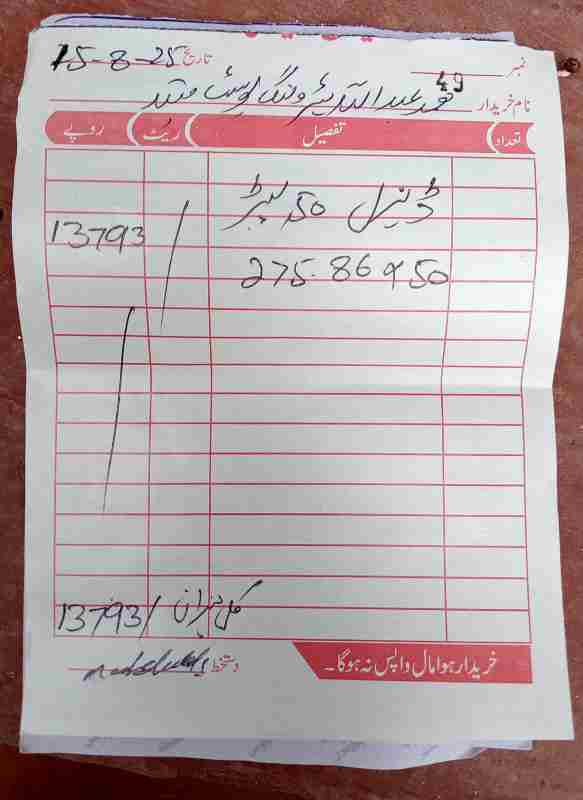 نمبر تاریخ 15-8-25
49
نام خریدار محمد عبداللہ پٹرولنگ پوسٹ
تعداد تفصیل ریٹ روپے
ڈیزل 50 لیٹر
13793/
275.86 x 50
کل میزان 13793/
خریدا ہوا مال واپس نہ ہوگا۔
دستخط